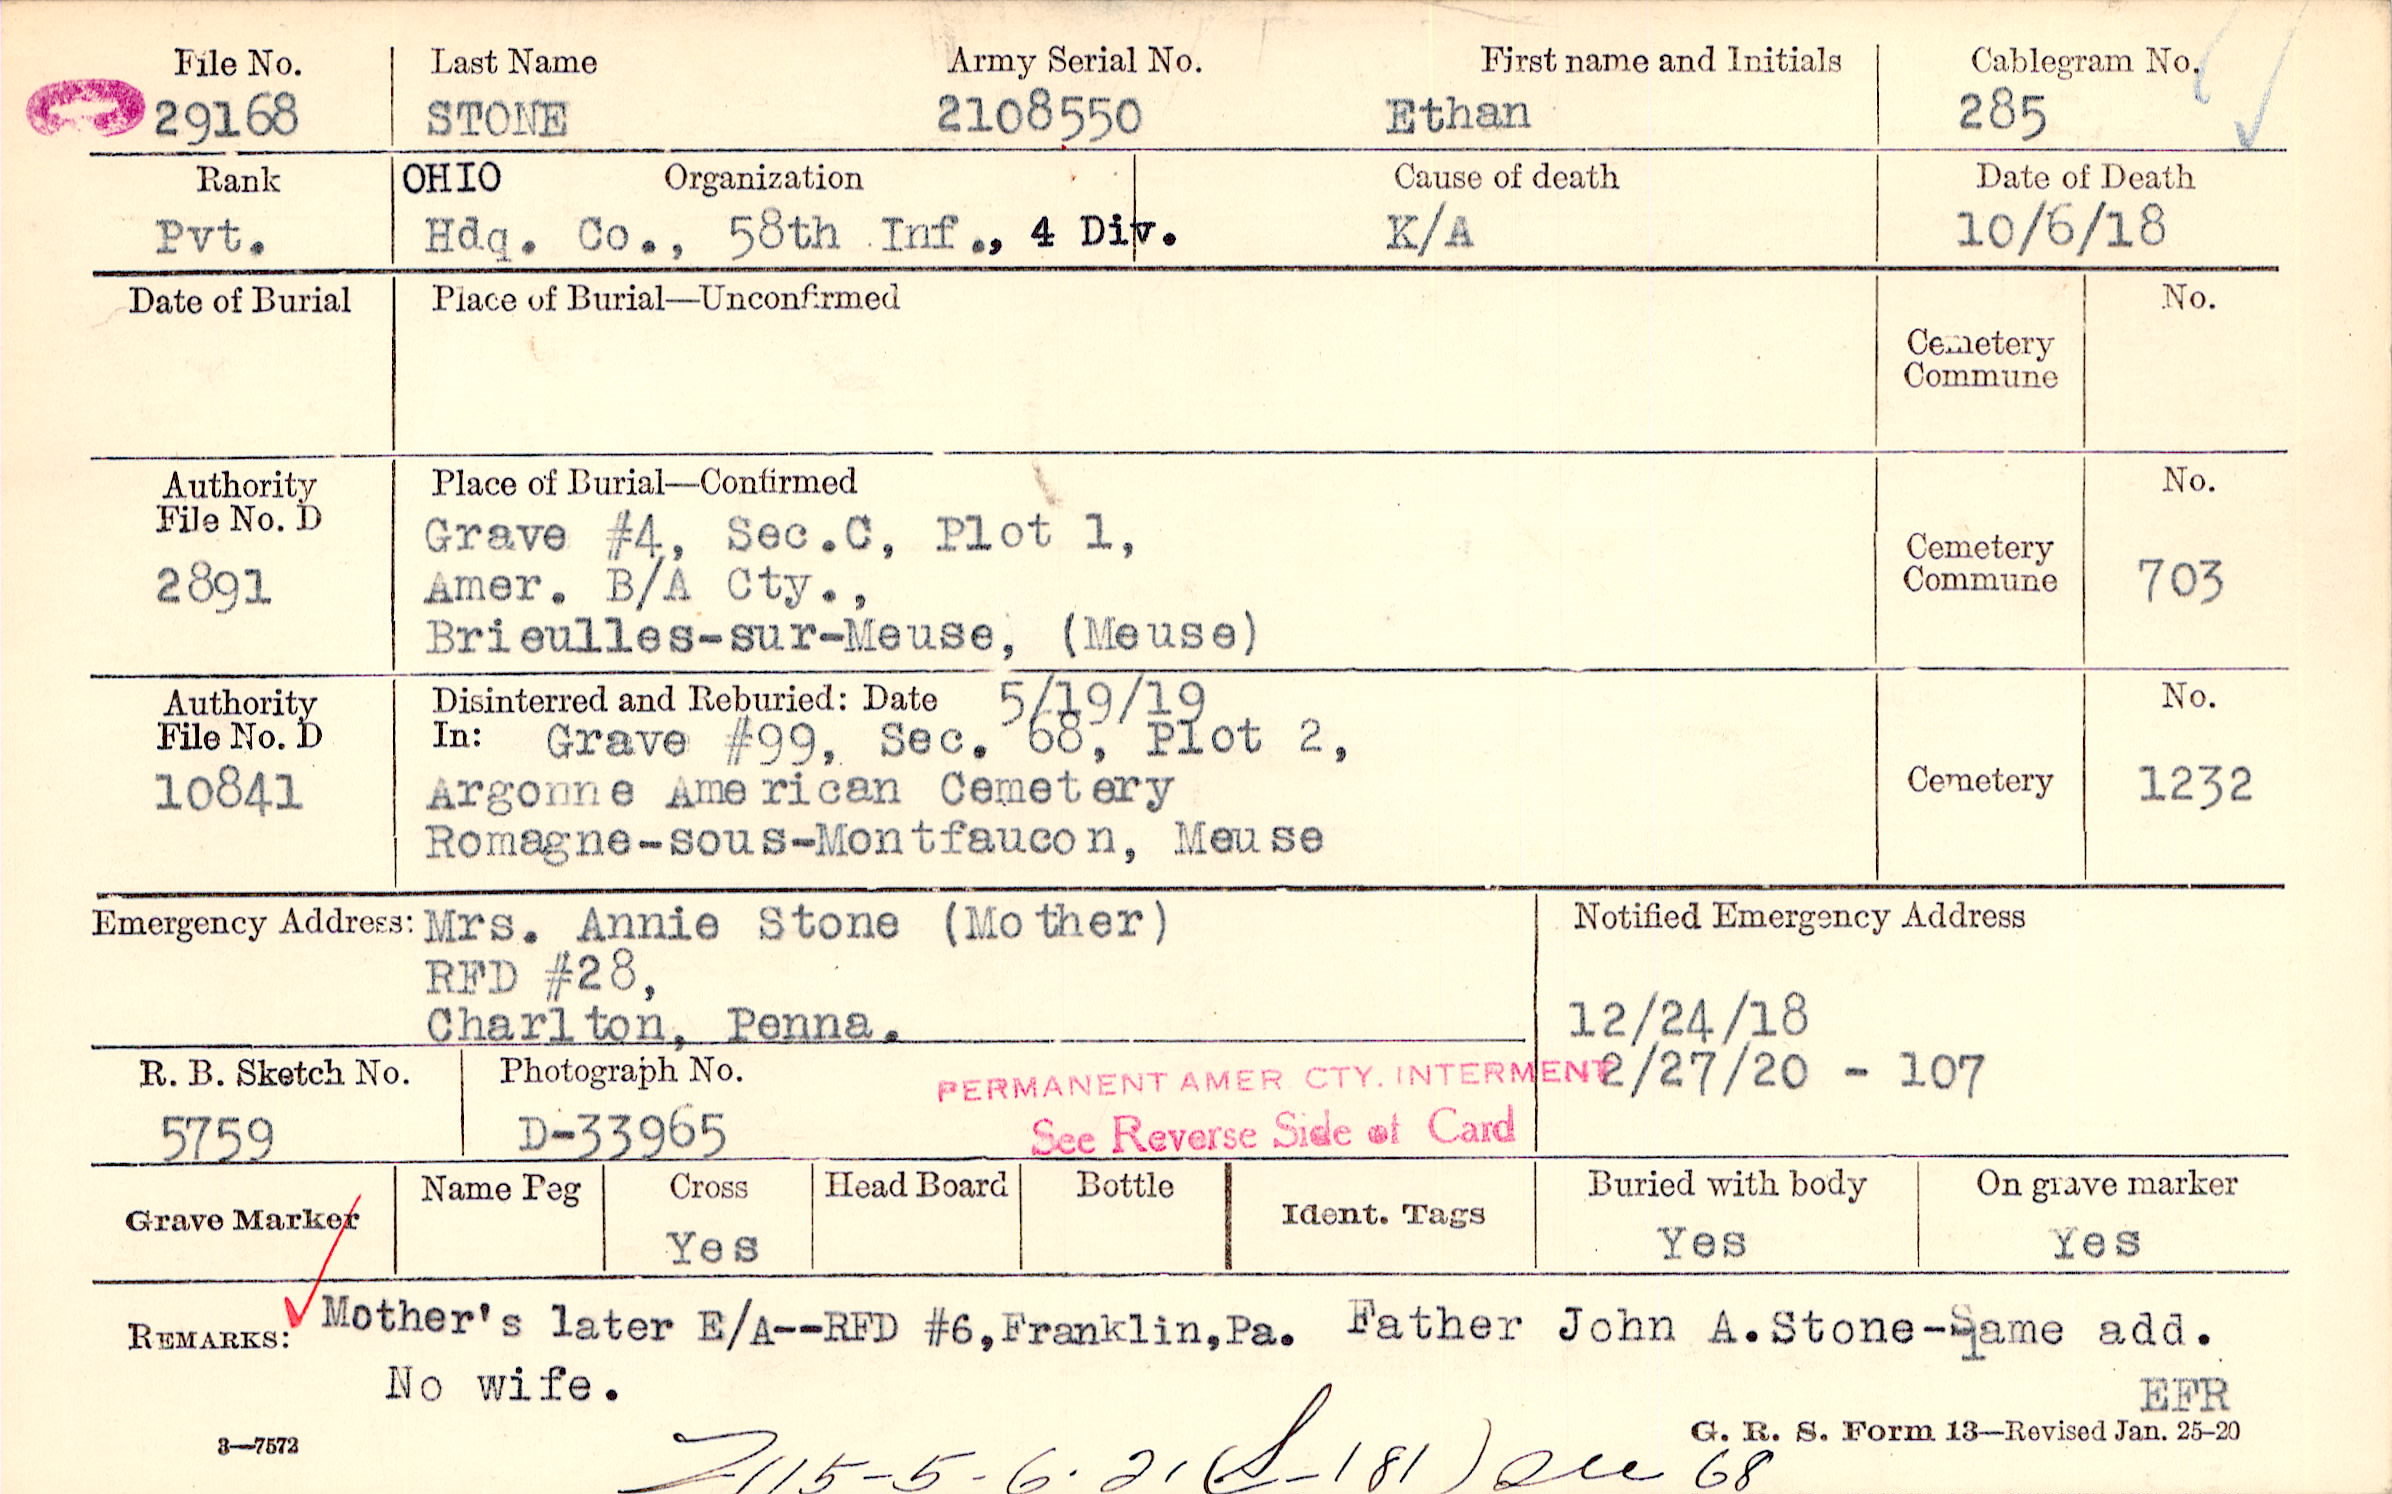 File No. Last Name Army Serial No. First name and Initials Cablegram No.
29168 STONE 2108550 Ethan 285
Rank OHIO Organization Cause of death Date of Death
Pvt. Hdq. Co., 58th Inf., 4 Div. K/A 10/6/18
Date of Burial Place of Burial—Unconfirmed No.
Cemetery
Commune
Authority Place of Burial—Confirmed No.
File No. D
Grave #4, Sec.C, Plot 1,
Cemetery
Commune
2891 Amer. B/A Cty., 703
Brieulles-sur-Meuse, (Meuse)
Authority Disinterred and Reburied: Date 5/19/19 No.
File No. D In: Grave #99, Sec. 68, Plot 2,
10841 Argonne American Cemetery Cemetery 1232
Romagne-sous-Montfaucon, Meuse
Emergency Address: Mrs. Annie Stone (Mother) Notified Emergency Address
RFD #28,
Charlton, Penna. 12/24/18
R. B. Sketch No. Photograph No. PERMANENT AMER CTY. INTERMENT 2/27/20 - 107
5759 D-33965 See Reverse Side of Card
Grave Marker Name Peg Cross Head Board Bottle Ident. Tags Buried with body On grave marker
Yes Yes Yes
REMARKS: Mother's later E/A--RFD #6,Franklin,Pa. Father John A.Stone-Same add.
No wife. EFR
3—7572 G. R. S. Form 13—Revised Jan. 25-20
115-5-6.21 (S-181) 68